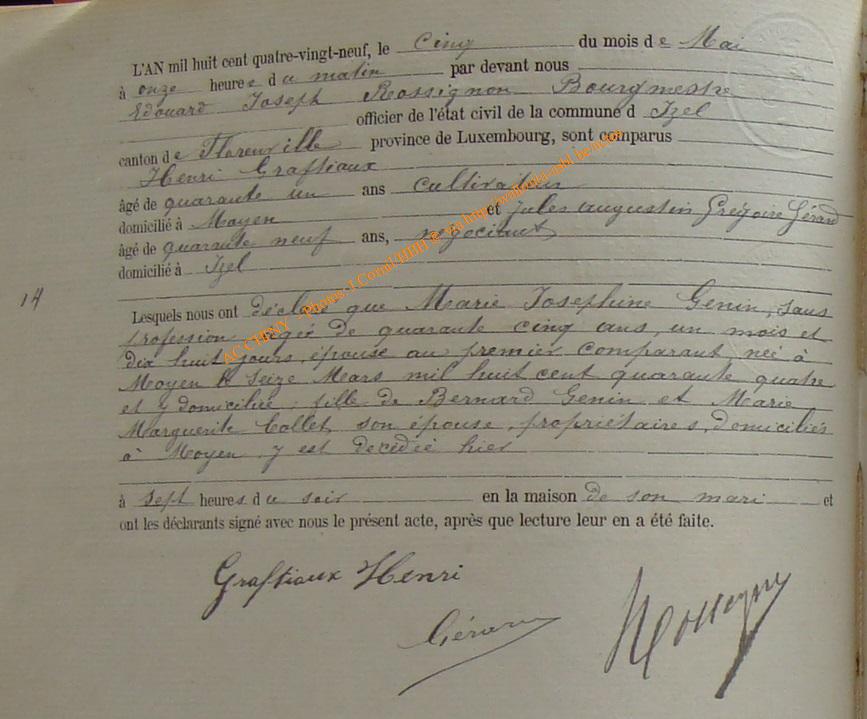 L'AN mil huit cent quatre-vingt-neuf, le cinq du mois de Mai
à onze heures du matin par devant nous
Edouard Joseph Rossignon Bourgmestre
officier de l'état civil de la commune d Izel
canton de Florenville province de Luxembourg, sont comparus
Henri Graftiaux
âgé de quarante un ans cultivateur
domicilié à Moyen et Jules Augustin Grégoire Gérard
âgé de quarante neuf ans, négociant
domicilié à Izel
14
Lesquels nous ont déclaré que Marie Josephine Genin, sans
profession, agée de quarante cinq ans, un mois et
dix huit jours, épouse au premier comparant, née à
Moyen le seize Mars mil huit cent quarante quatre
et y domiciliée, fille de Bernard Genin et Marie
Marguerite Collet, son épouse, propriétaires, domiciliés
à Moyen, y est décédée hier
à sept heures du soir en la maison de son mari et
ont les déclarants signé avec nous le présent acte, après que lecture leur en a été faite.
Graftiaux Henri
Gérard
ACCHINY - Photos: J.Cornil/HBH